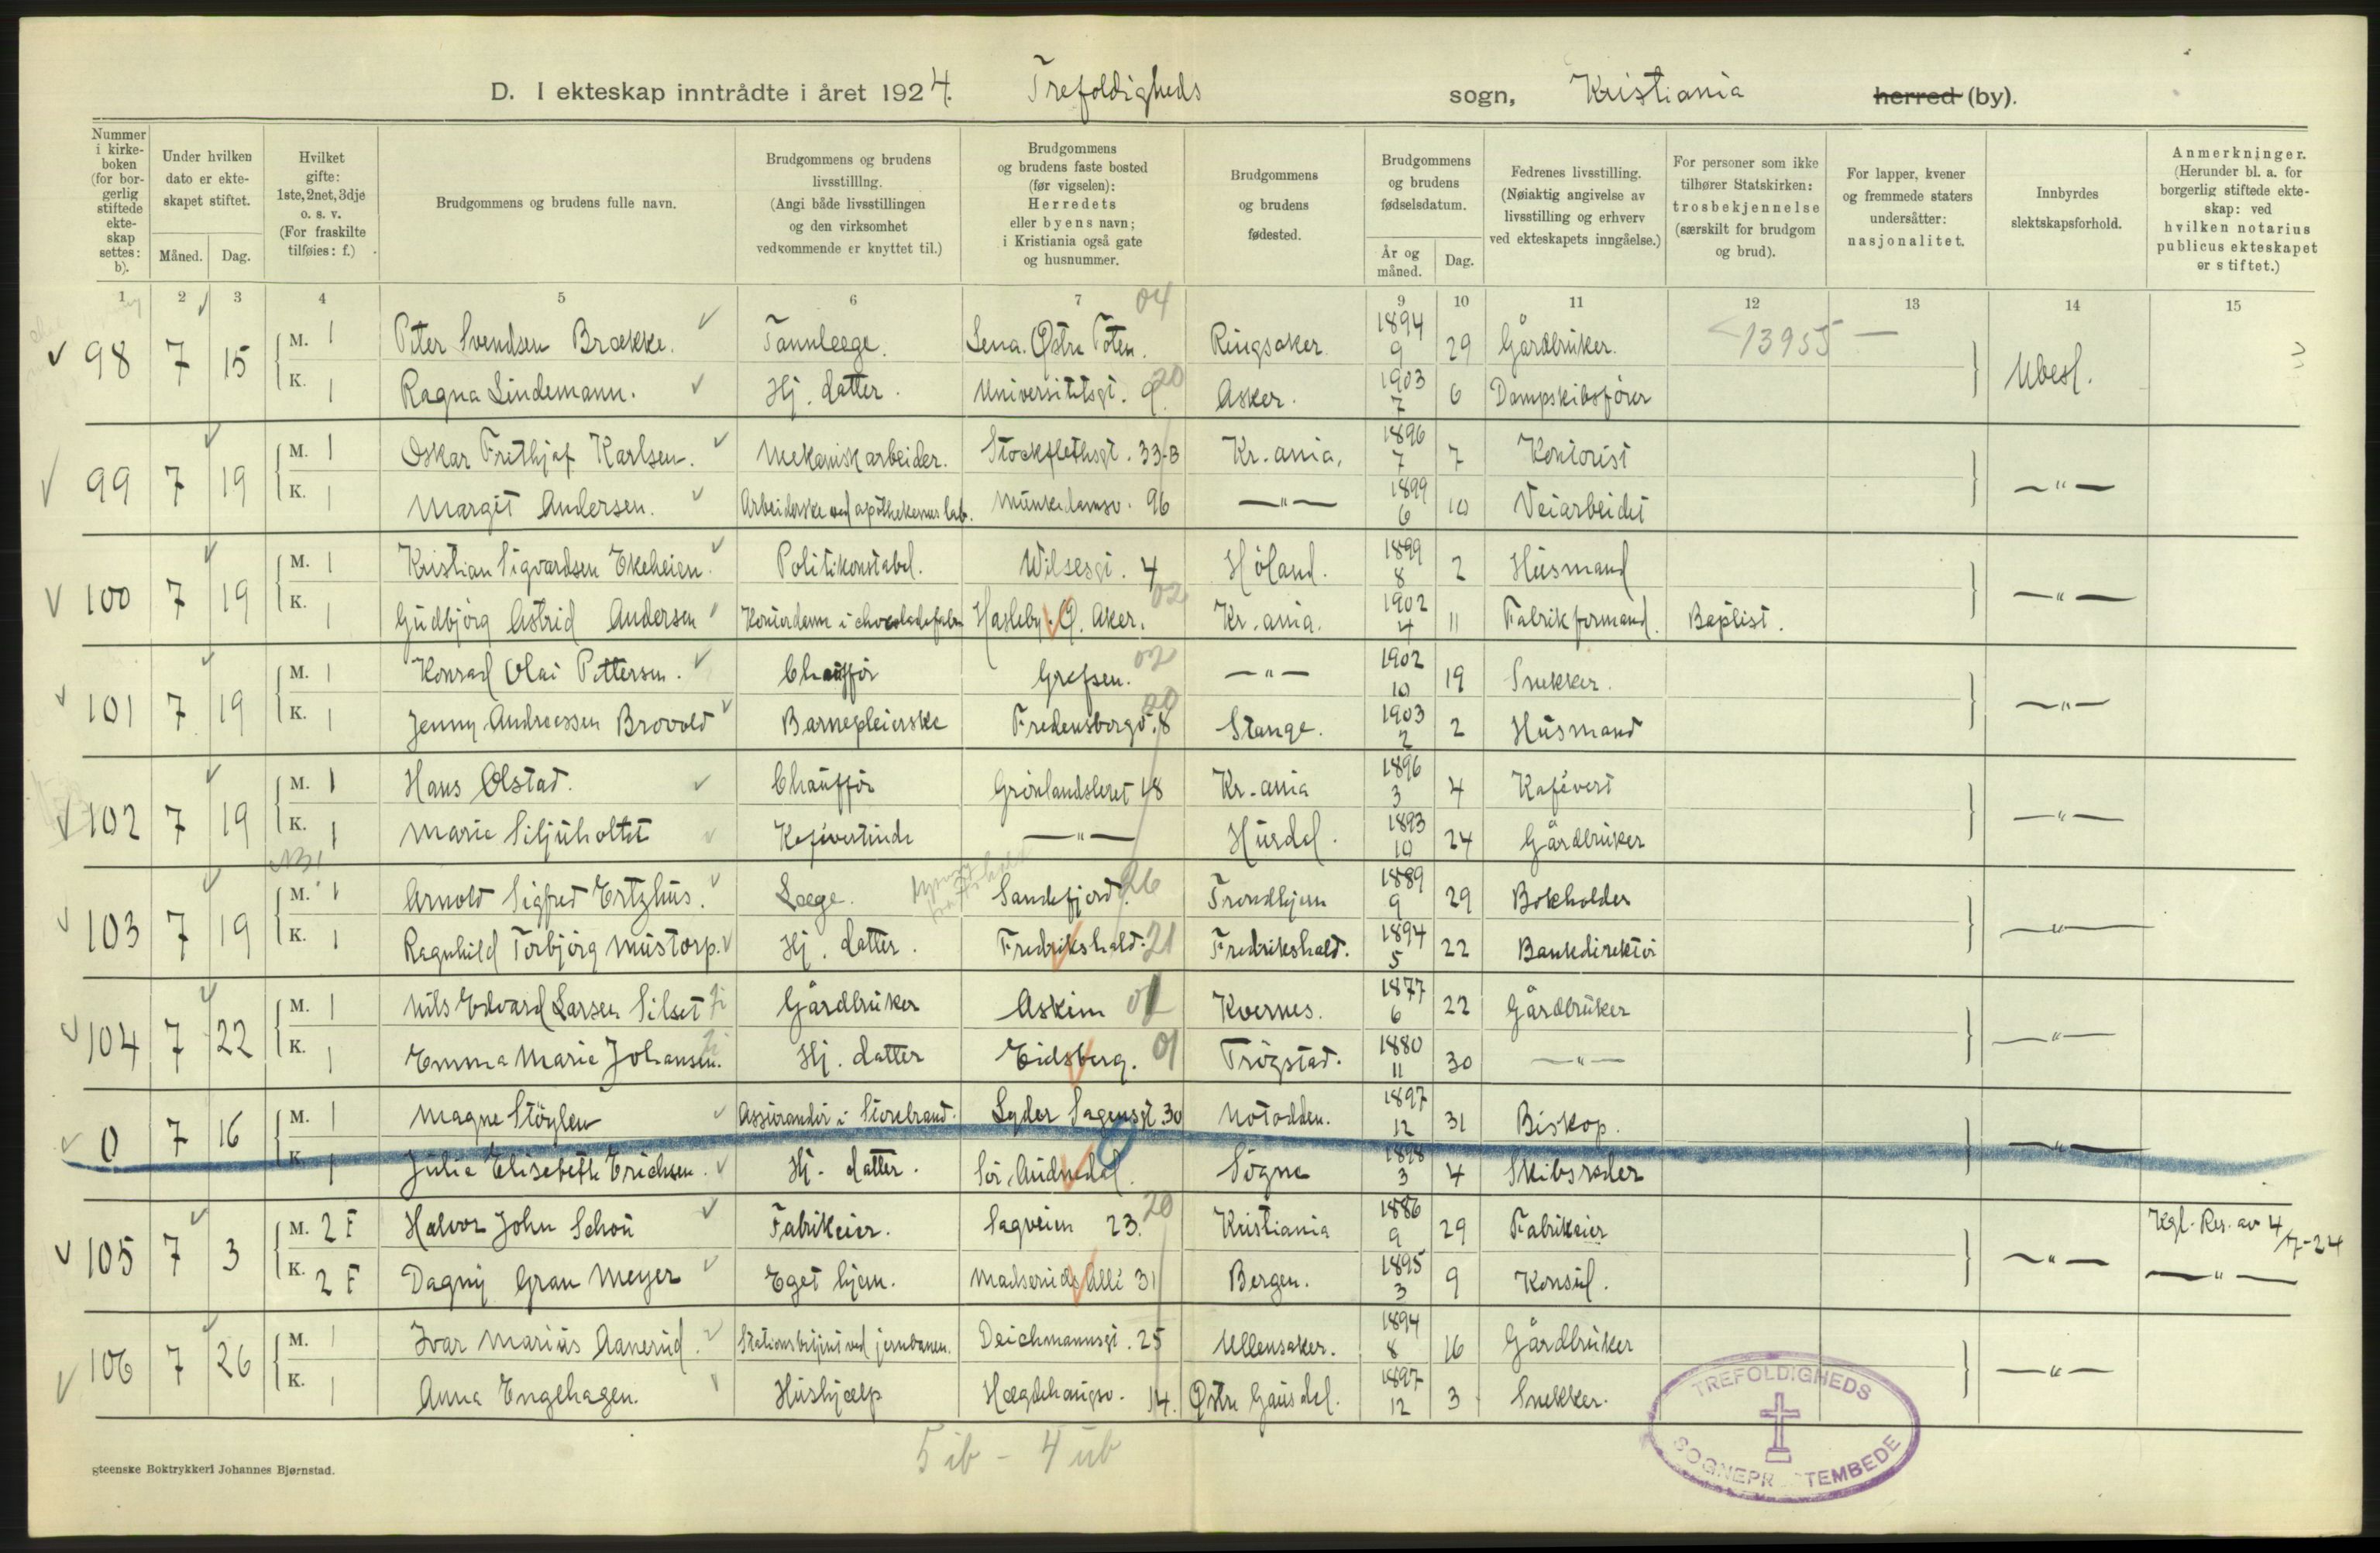 D. I ekteskap inntrådte i året 1924. Trefoldigheds sogn, Kristiania herred (by).
Nummer i kirkeboken (for borgerlig stiftede ekteskap settes: b).
Under hvilken dato er ekteskapet stiftet.
Måned. Dag.
Hvilket gifte: 1ste, 2net, 3dje o. s. v. (For fraskilte tilføies: f.)
Brudgommens og brudens fulle navn.
Brudgommens og brudens livsstilling. (Angi både livsstillingen og den virksomhet vedkommende er knyttet til.)
Brudgommens og brudens faste bosted (før vigselen): Herredets eller byens navn; i Kristiania også gate og husnummer.
Brudgommens og brudens fødested.
Brudgommens og brudens fødselsdatum.
År og måned. Dag.
Fedrenes livsstilling. (Nøiaktig angivelse av livsstilling og erhverv ved ekteskapets inngåelse.)
For personer som ikke tilhører Statskirken: trosbekjennelse (særskilt for brudgom og brud).
For lapper, kvener og fremmede staters undersåtter: nasjonalitet.
Innbyrdes slektskapsforhold.
Anmerkninger. (Herunder bl. a. for borgerlig stiftede ekteskap: ved hvilken notarius publicus ekteskapet er stiftet.)
1 2 3 4 5 6 7 9 10 11 12 13 14 15
98 7 15 M. 1 Peter Svendsen Brække. Tannlæge. Sena. Østre Toten. 04 Ringsaker 1894 9 29 Gårdbruker. 13955 — Ubesl.
K. 1 Ragna Lindemann. Hj. datter. Universitetsgt. 9 20 Asker. 1903 7 6 Dampskibsfører
99 7 19 M. 1 Oskar Frithjof Karlsen. Mekanisk arbeider. Stockflethsgt. 33B Kr.ania, 1896 7 7 Kontorist —"—
K. 1 Margit Andersen. Arbeiderske ved apothekernes lab. Munkedamsv. 96 —"— 1899 6 10 Veiarbeider
100 7 19 M. 1 Kristian Sigvardsen Ekeheien. Politikonstabel. Wilsesgt. 4 Høland. 1899 8 2 Husmand —"—
K. 1 Gudbjørg Astrid Andersen Kontordame i chocoladefabr. Hasleby. Ø. Aker. 02 Kr.ania. 1902 4 11 Fabrikformand. Baptist.
101 7 19 M. 1 Konrad Olai Pettersen. Chauffør Grefsen. 02 —"— 1902 10 19 Snekker. —"—
K. 1 Jenny Andreassen Brovold Barnepleierske Fredensborgv. 8 20 Stange. 1903 2 2 Husmand
102 7 19 M. 1 Hans Olstad. Chauffør Grønlandsleret 18 Kr.ania 1896 3 4 Kafévert —"—
K. 1 Marie Siljuholtet Kafévertinde —"— Hurdal. 1893 10 24 Gårdbruker
103 7 19 M. 1 Arnold Sigfred Ertzhus. Læge. Sandefjord. 26 Trondhjem 1889 9 29 Bokholder —"—
K. 1 Ragnhild Torbjørg Mustorp. Hj. datter. Fredrikshald. 21 Fredrikshald. 1894 5 22 Bankdirektør
104 7 22 M. 1 Nils Edvard Larsen Silset Gårdbruker Askim 01 Kvernes. 1877 6 22 Gårdbruker —"—
K. 1 Emma Marie Johansen. Hj. datter Eidsberg. 01 Trøgstad. 1880 11 30 —"—
0 7 16 M. 1 Magne Støylen Assurandør i Storebrand. Lyder Sagensgt. 30 Notodden. 1897 12 31 Biskop. —"—
K. 1 Julie Elisabeth Erichsen. Hj. datter. Sør. Audnedal. Søgne 1898 3 4 Skibsreder
105 7 3 M. 2 F Halvor John Schou Fabrikeier. Sagveien 23. 20 Kristiania 1886 9 29 Fabrikeier —"— Kgl. Res. av 4/7-24
K. 2 F Dagny Gran Meyer Eget hjem. Madserud Allé 31 Bergen. 1895 3 9 Konsul. —"—
106 7 26 M. 1 Ivar Marius Aanerud. Stationsbetjent ved jernbanen. Deichmannsgt. 25 Ullensaker. 1894 8 16 Gårdbruker —"—
K. 1 Anna Engehagen. Hushjælp Hægdehaugsv. 14. Østre Gausdal. 1897 12 3 Snekker.
5 ib - 4 ub
TREFOLDIGHEDS SOGNEPR TEMBEDE
gteenske Boktrykkeri Johannes Bjørnstad.